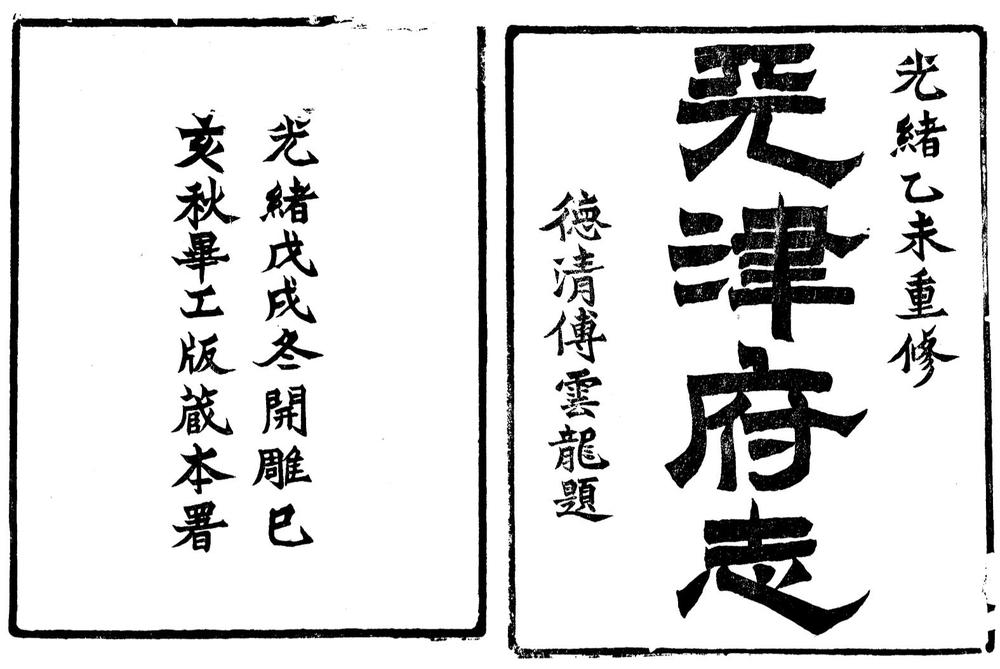 光緒乙未重修
天津府志
德清傅雲龍題
光緒戊戌冬開雕巳
亥秋畢工版藏本署